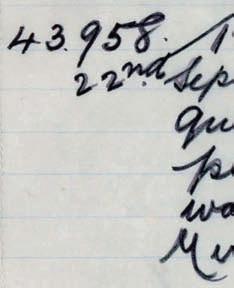 43.958.
22nd Sep
qu
p
wo